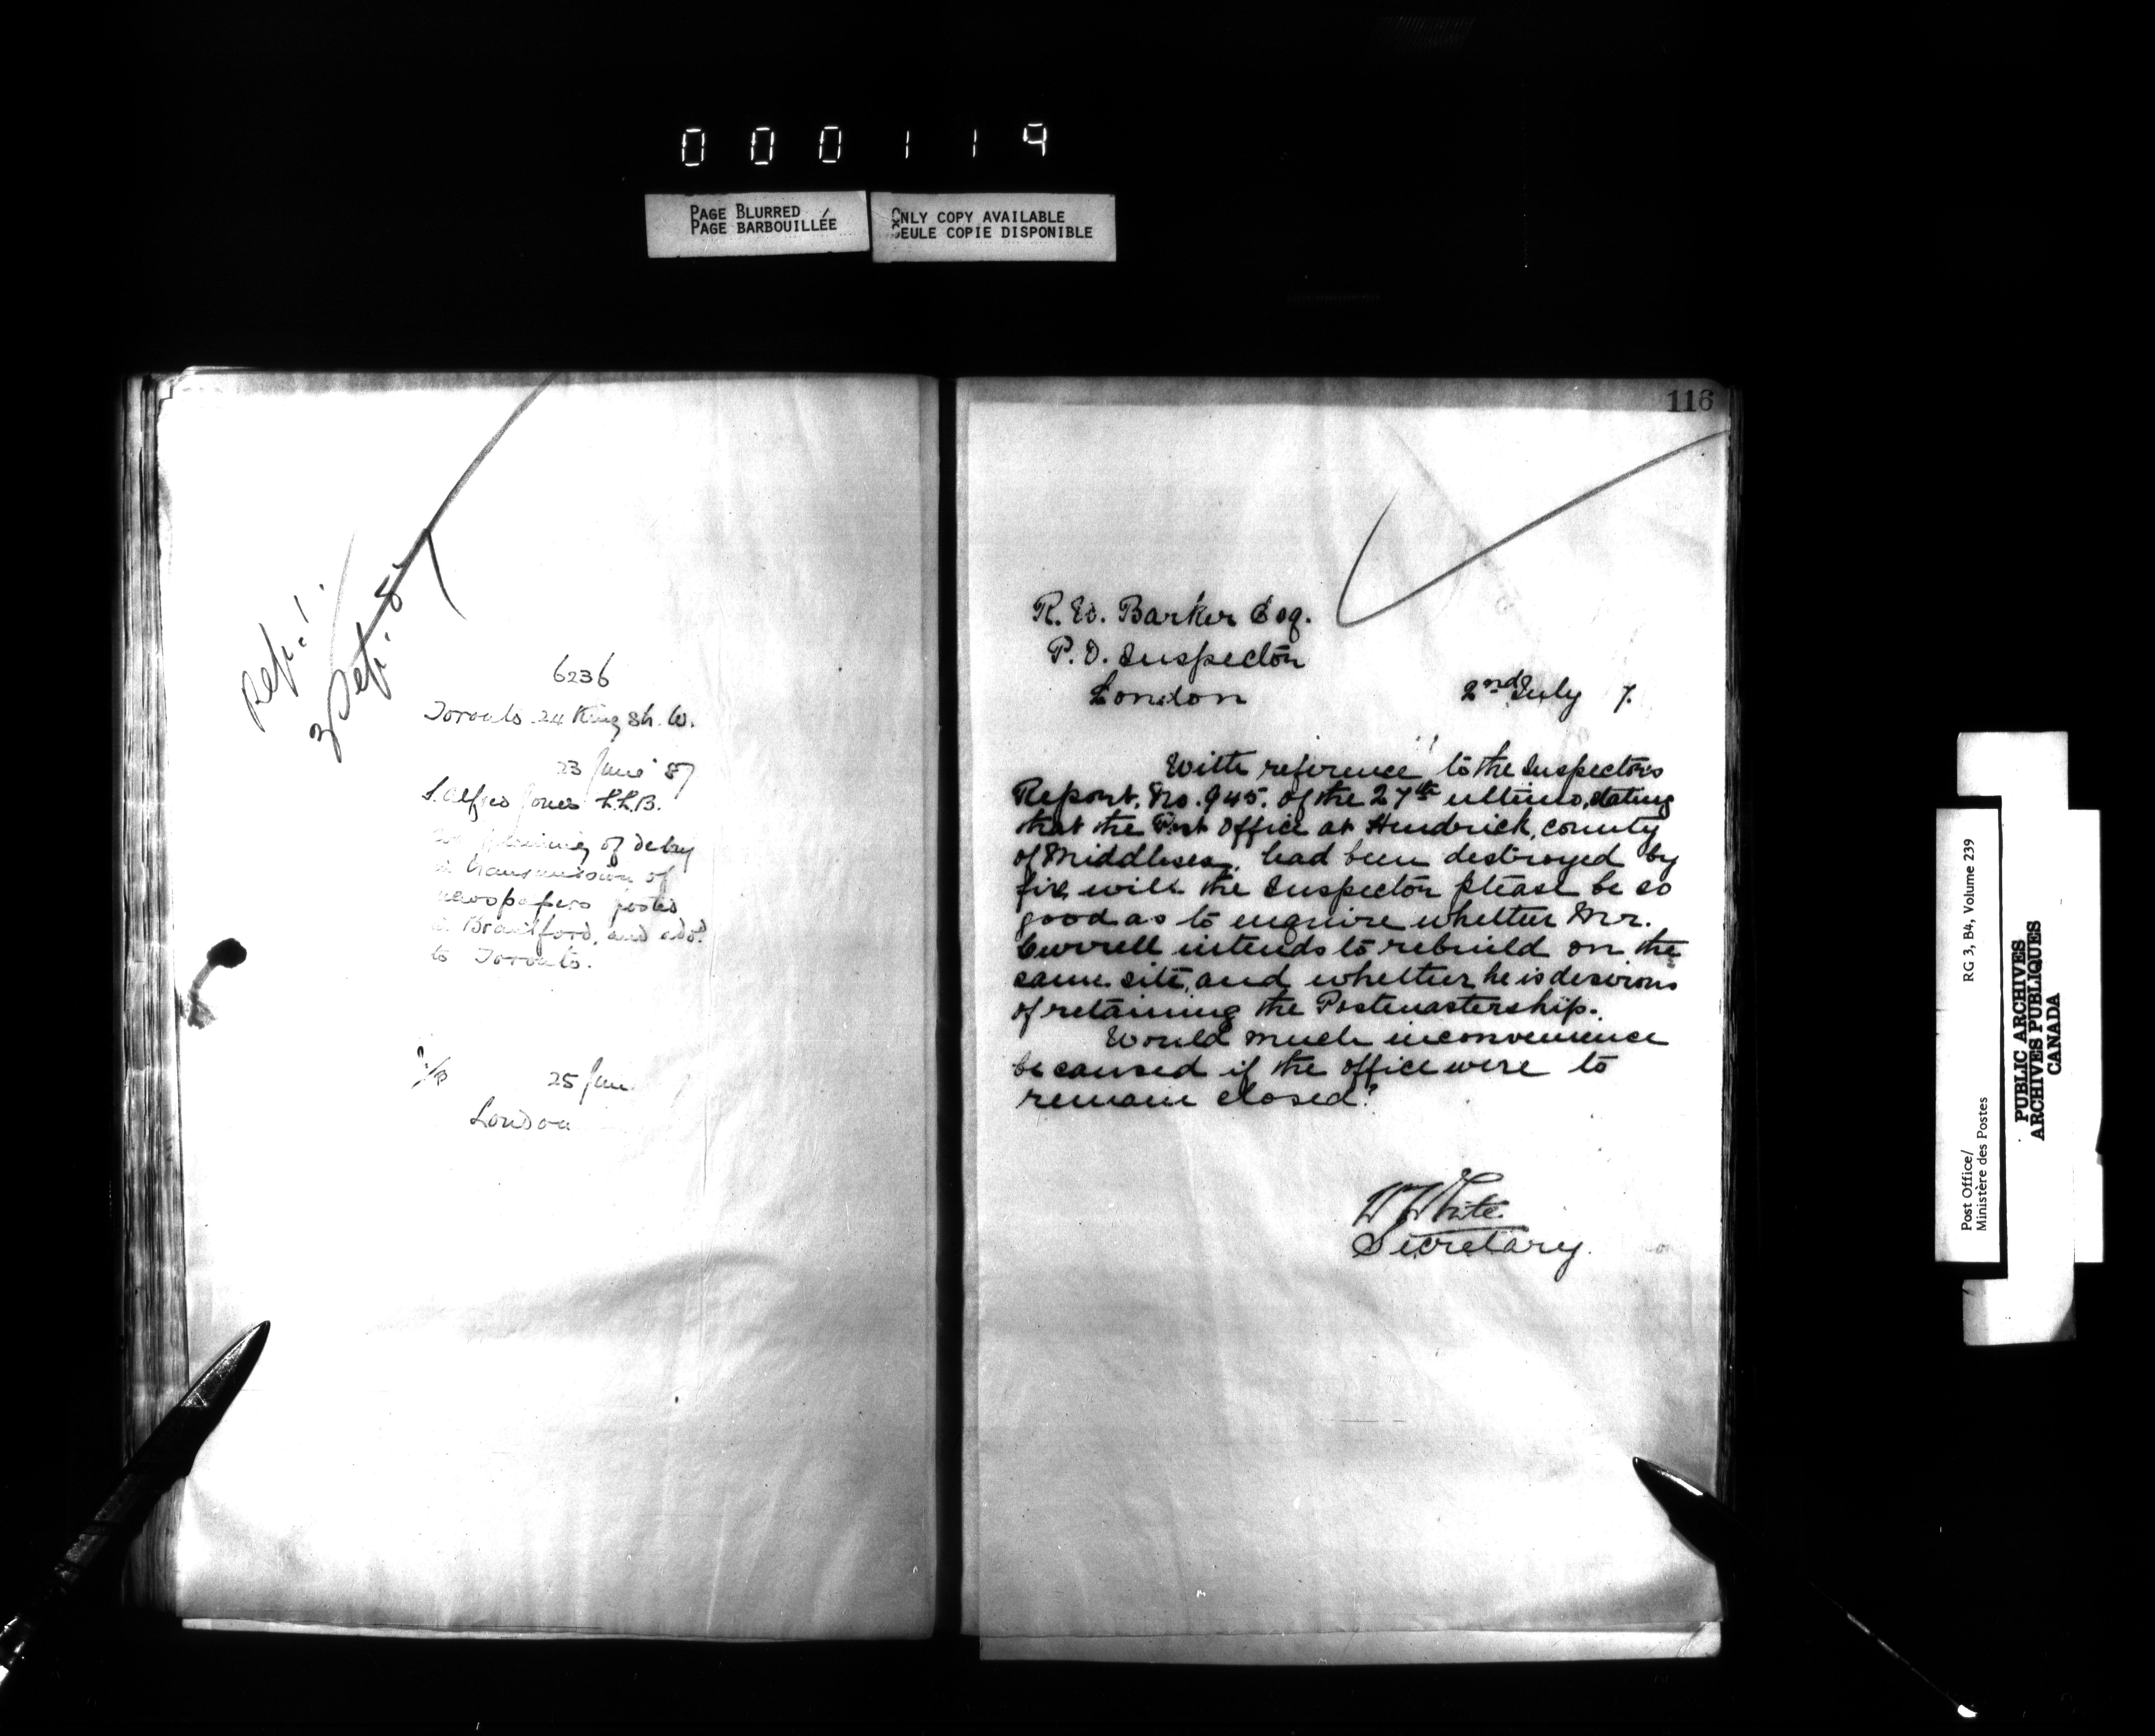 000119
PAGE BLURRED
PAGE BARBOUILLÉE
ONLY COPY AVAILABLE
SEULE COPIE DISPONIBLE
6236
Toronto 24 King St. W.
23 June '87
S. Alfred Jones L.L.B.
of delay
in transmission of
newspapers posted
in Brantford, and add.
to Toronto.
25 June
London
116
R. W. Barker Esq.
P.O. Inspector
London
2nd July 7.
With reference to the Inspectors
Report. No. 945. of the 27th ultimo, stating
that the Post Office at Hendrick, county
of Middlesex, had been destroyed by
fire, will the Inspector please be so
good as to enquire whether Mr.
Currell intends to rebuild on the
same site, and whether he is desirous
of retaining the Postmastership.
Would much inconvenience
be caused if the office were to
remain closed?
W White.
Secretary.
Post Office/
Ministère des Postes
RG 3, B4, Volume 239
PUBLIC ARCHIVES
ARCHIVES PUBLIQUES
CANADA